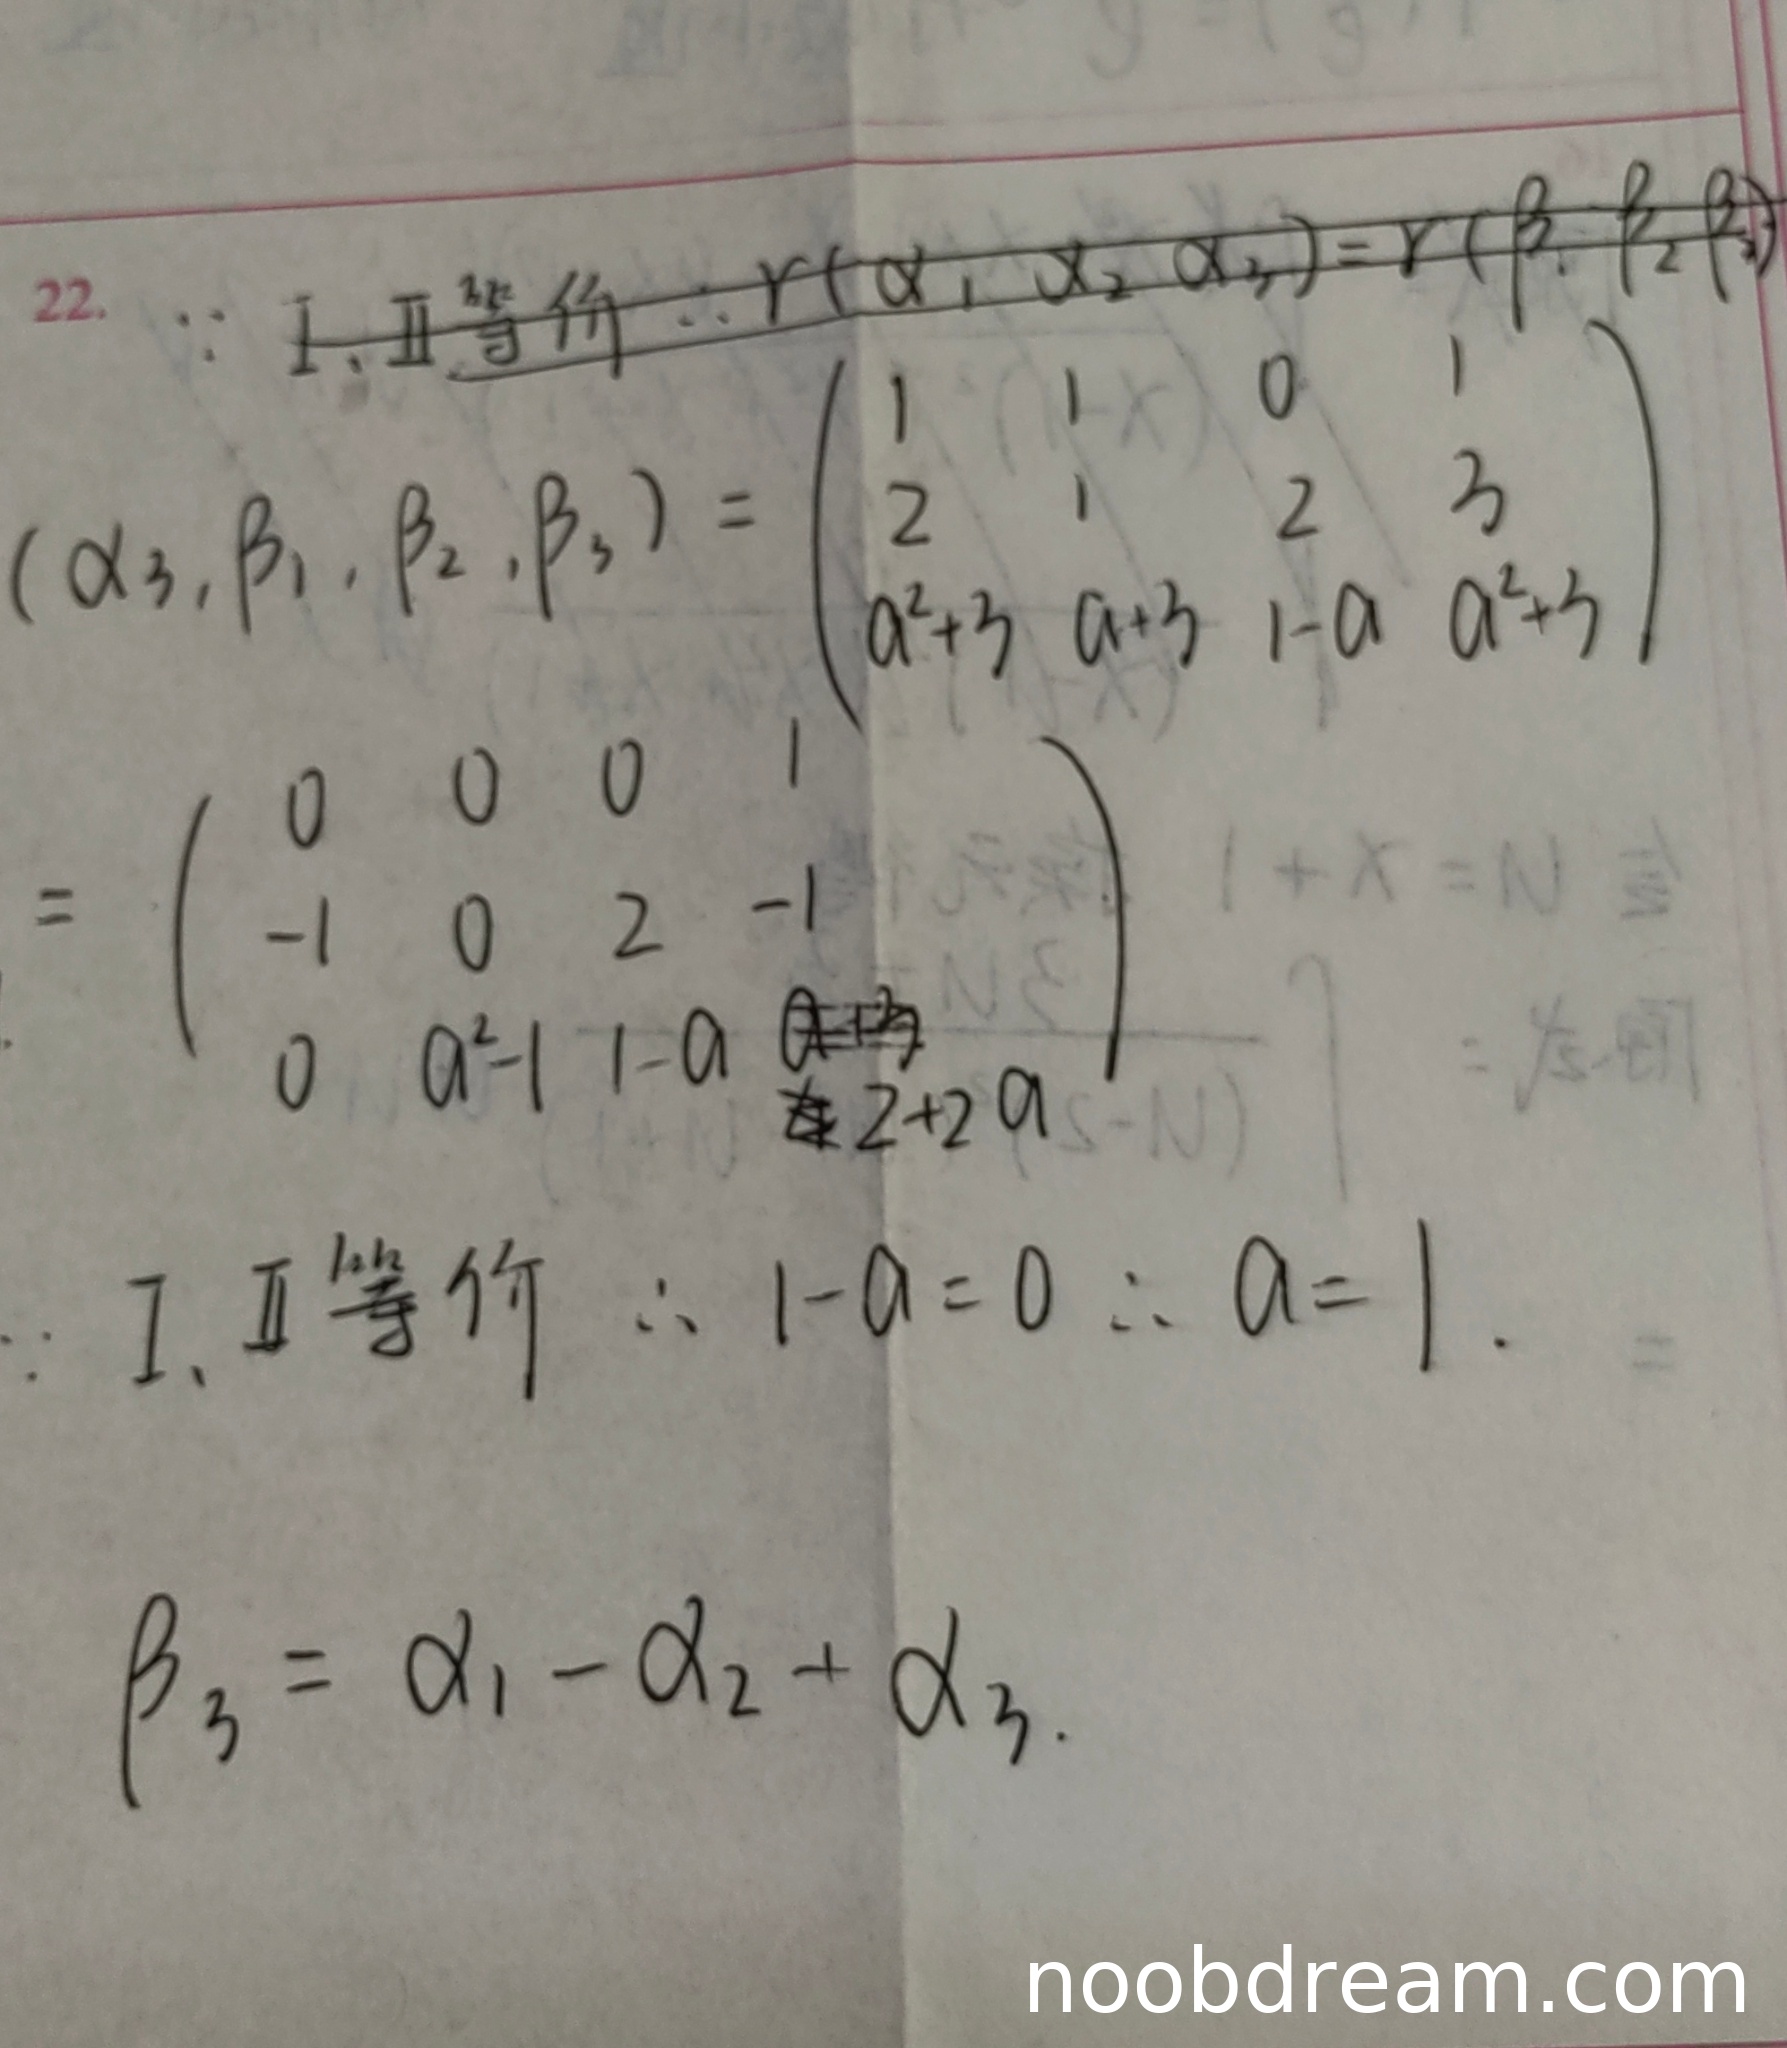 22. ∵ I、II等价 ∴ r(α₁ α₂ α₃) = r(β₁ β₂ β₃)
(α₃, β₁, β₂, β₃) = ( 1 1 0 1
2 1 2 3
a²+3 a+3 1-a a²+3 )
= ( 0 0 0 1
-1 0 2 -1
0 a²-1 1-a
2+2a )
∵ I、II等价 ∴ 1-a=0 ∴ a=1.
β₃ = α₁ - α₂ + α₃.
noobdream.com